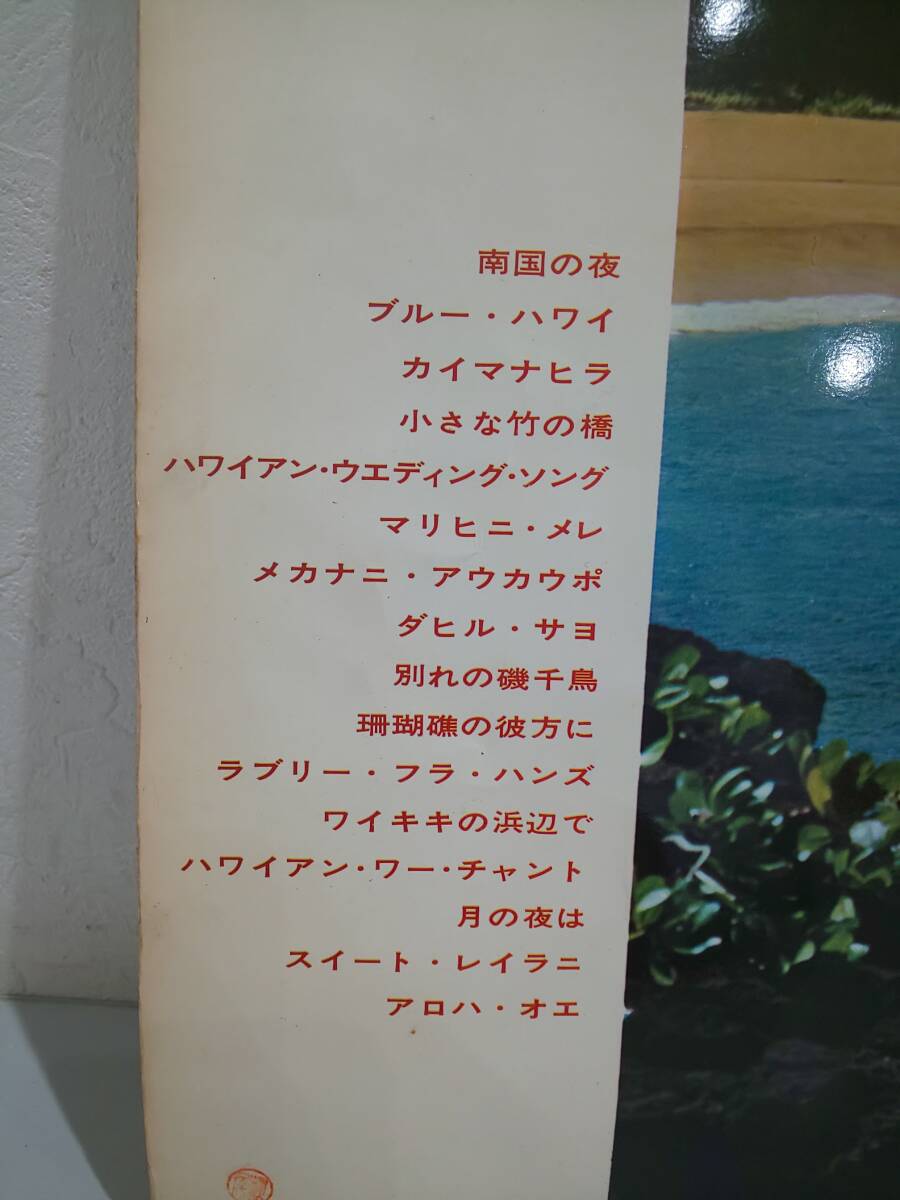 南国の夜
ブルー・ハワイ
カイマナヒラ
小さな竹の橋
ハワイアン・ウエディング・ソング
マリヒニ・メレ
メカナニ・アウカウポ
ダヒル・サヨ
別れの磯千鳥
珊瑚礁の彼方に
ラブリー・フラ・ハンズ
ワイキキの浜辺で
ハワイアン・ワー・チャント
月の夜は
スイート・レイラニ
アロハ・オエ